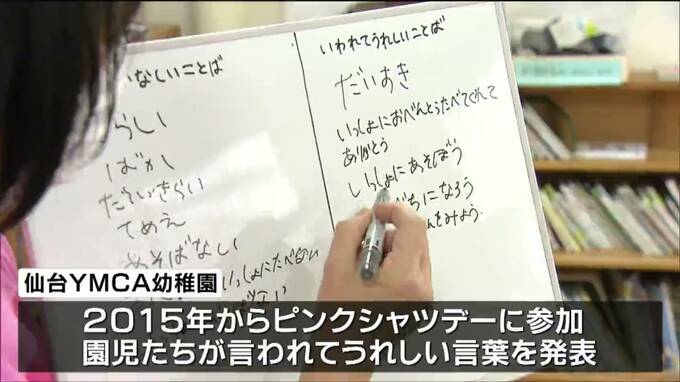 いなしいことば
らい
ばか
だいきらい
てめえ
あそばない
いっしょにたべない
いわれてうれしいことば
だいすき
いっしょにおべんとうたべてくれて
ありがとう
いっしょにあそぼう
だちになろう
をみよう
仙台YMCA幼稚園
2015年からピンクシャツデーに参加
園児たちが言われてうれしい言葉を発表